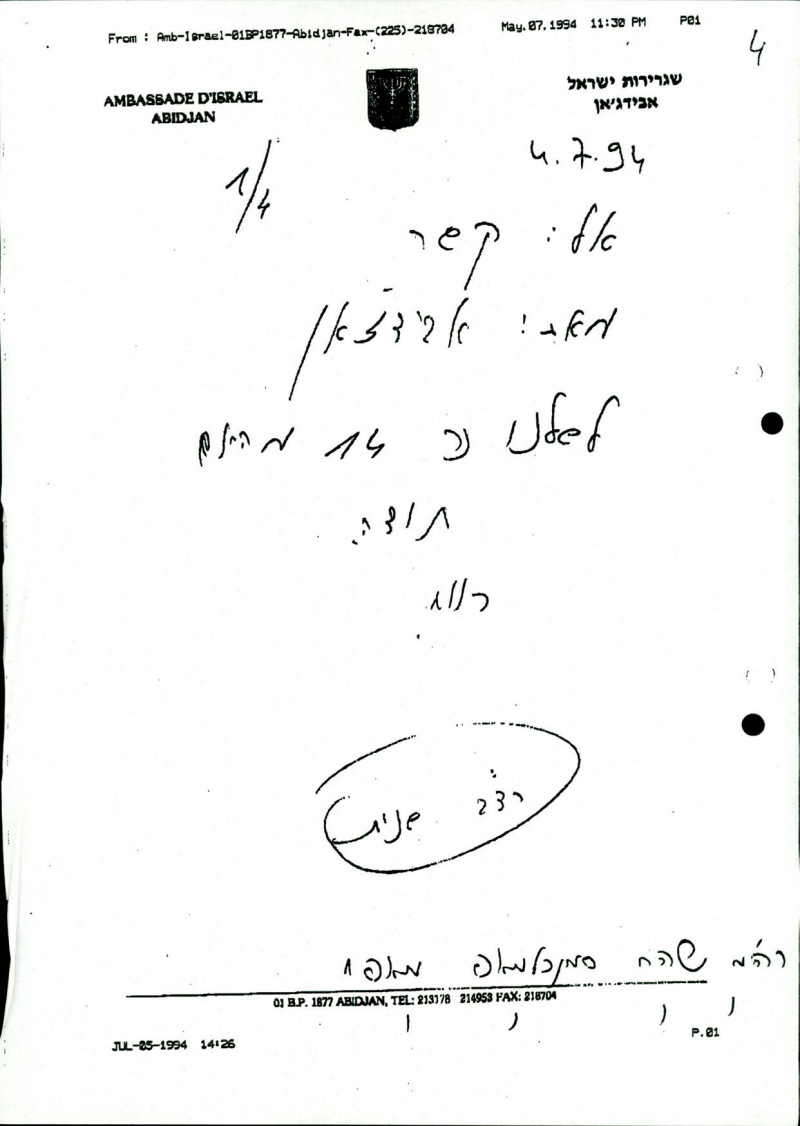 From : Amb-Israel-01BP1877-Abidjan-Fax-(225)-218704 May.07.1994 11:30 PM P01
4
AMBASSADE D'ISRAEL
ABIDJAN
שגרירות ישראל
אבידג'אן
4.7.94
1/4
אל: קשר
מאת: אבידג'אן
לשלנו נר 14 מהיום
תודה.
שנית
רה"מ שהח סמנכלמאפ מאפ 1
01 B.P. 1877 ABIDJAN, TEL: 213178 214953 FAX: 218704
JUL-05-1994 14:26 P.01